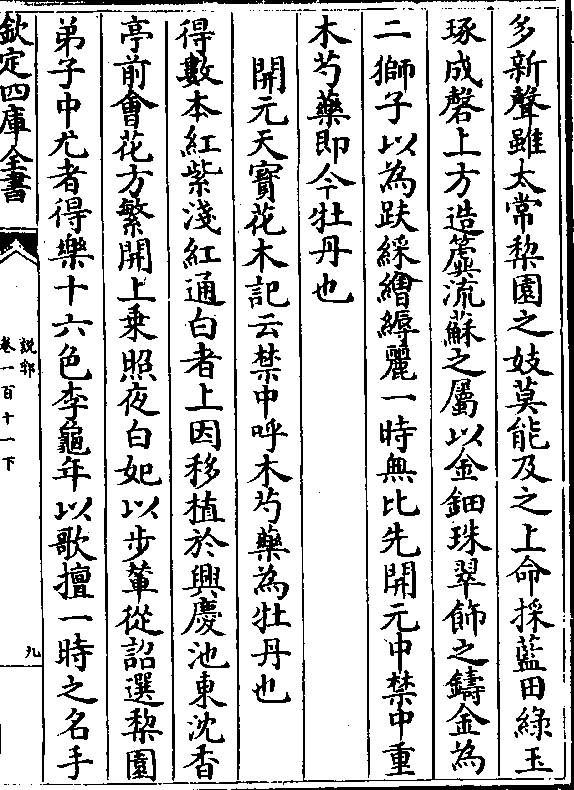 多新聲雖太常棃園之妓莫能及之上命採藍田緑玉
琢成磬上方造簴流蘇之屬以金鈿珠翠飾之鑄金為
二獅子以為趺綵繪縟麗一時無比先開元中禁中重
木芍藥即今牡丹也
開元天寳花木記云禁中呼木芍藥為牡丹也
得數本紅紫淺紅通白者上因移植於興慶池東沈香
亭前會花方繁開上乗照夜白妃以步輦從詔選棃園
弟子中尤者得樂十六色李龜年以歌擅一時之名手
欽定四庫全書
説郛
卷一百十一下
九